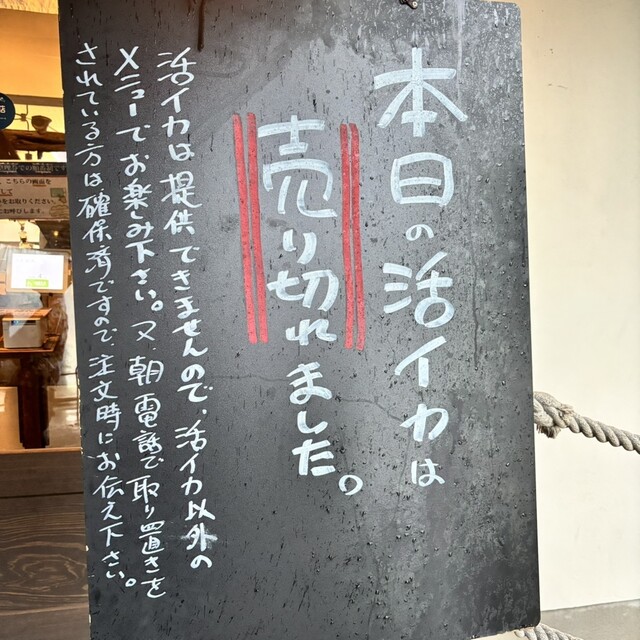 本日の活イカは
売り切れました。
活イカは提供できませんので、活イカ以外の
メニューでお楽しみ下さい。又、朝電話で取り置きを
されている方は、確保済ですので、注文時にお伝え下さい。